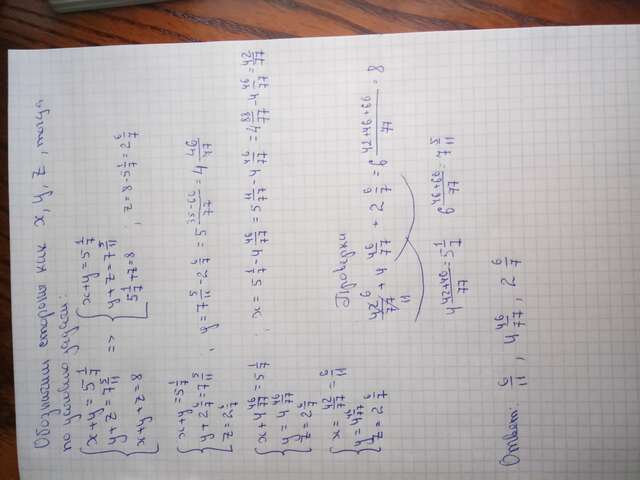 Обозначим стороны как x, y, z, тогда
по условию задачи:
{ x+y=5 1/7
{ y+z=7 5/11
{ x+y+z=8
=>
{ x+y=5 1/7
{ y+z=7 5/11
{ 5 1/7+z=8
; z=8-5 1/7=2 6/7
{ x+y=5 1/7
{ y+2 6/7=7 5/11
{ z=2 6/7
, y=7 5/11-2 6/7=5 35-66/77=4 46/47
{ x+4 46/77=5 1/7
{ y=4 46/77
{ z=2 6/7
; x=5 1/7-4 46/77=5 11/77-4 46/77=4 88/77-4 46/77=42/77
{ x=42/77=6/11
{ y=4 46/77
{ z=2 6/7
Проверки
42/77 6/11 + 4 46/77 + 2 6/7 = 6 42+46+66/77 = 8
4 42+46/77=5 1/7
6 46+66/77=7 5/11
Ответ: 6/11, 4 46/77, 2 6/7